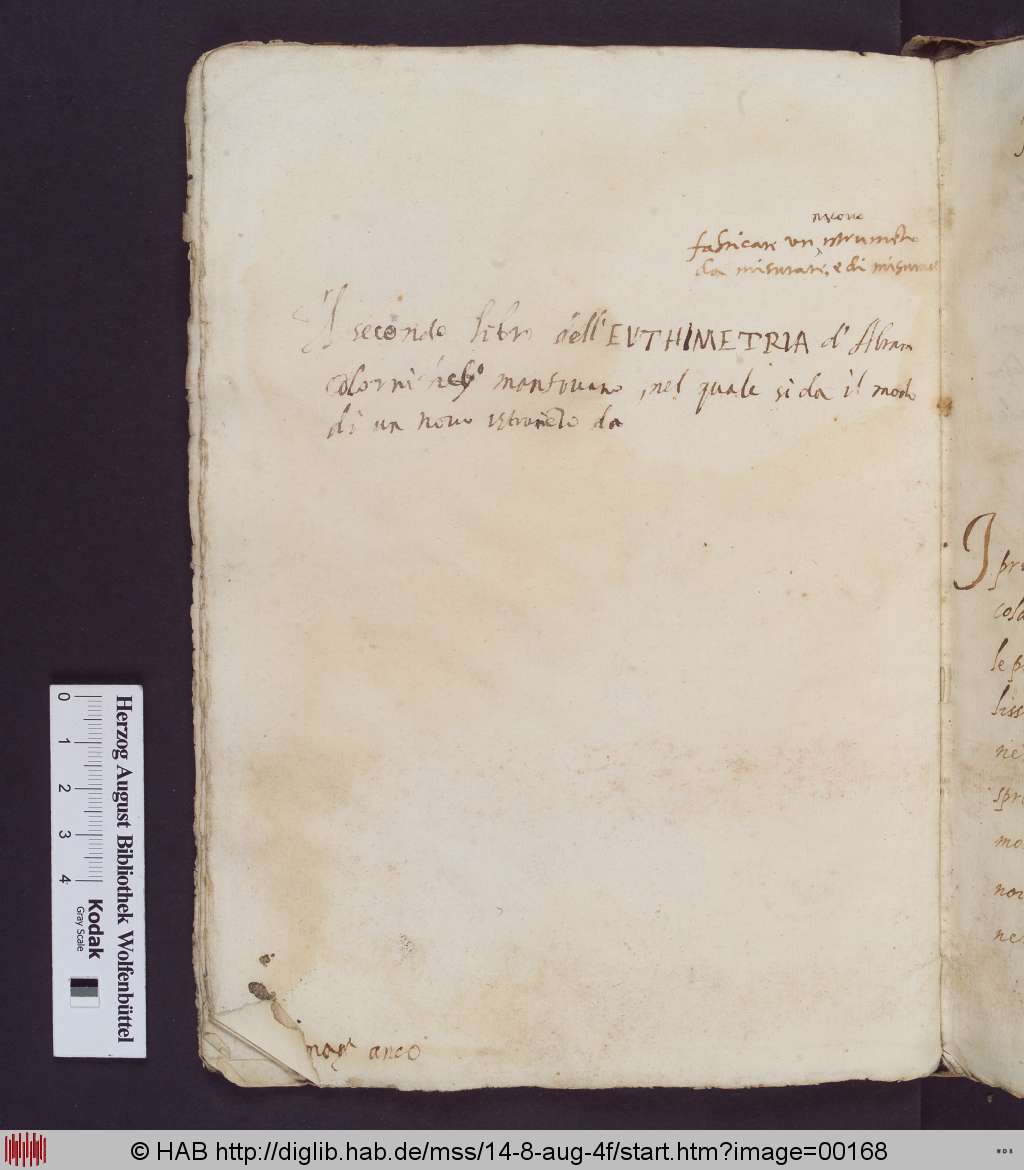 nuovo
fabricare un istrumēto
da misurare, e di misurar
Il secondo libro dell' EVTHIMETRIA d' Abram
Colorni heb.o mantovano, nel quale si da il modo
di un novo istrumēto da
anco
I
pri
cosa
le p
liss
ne
spr
mo
non
ne
0 1 2 3 4
Herzog August Bibliothek Wolfenbüttel
Kodak
Gray Scale
© HAB http://diglib.hab.de/mss/14-8-aug-4f/start.htm?image=00168
WDB